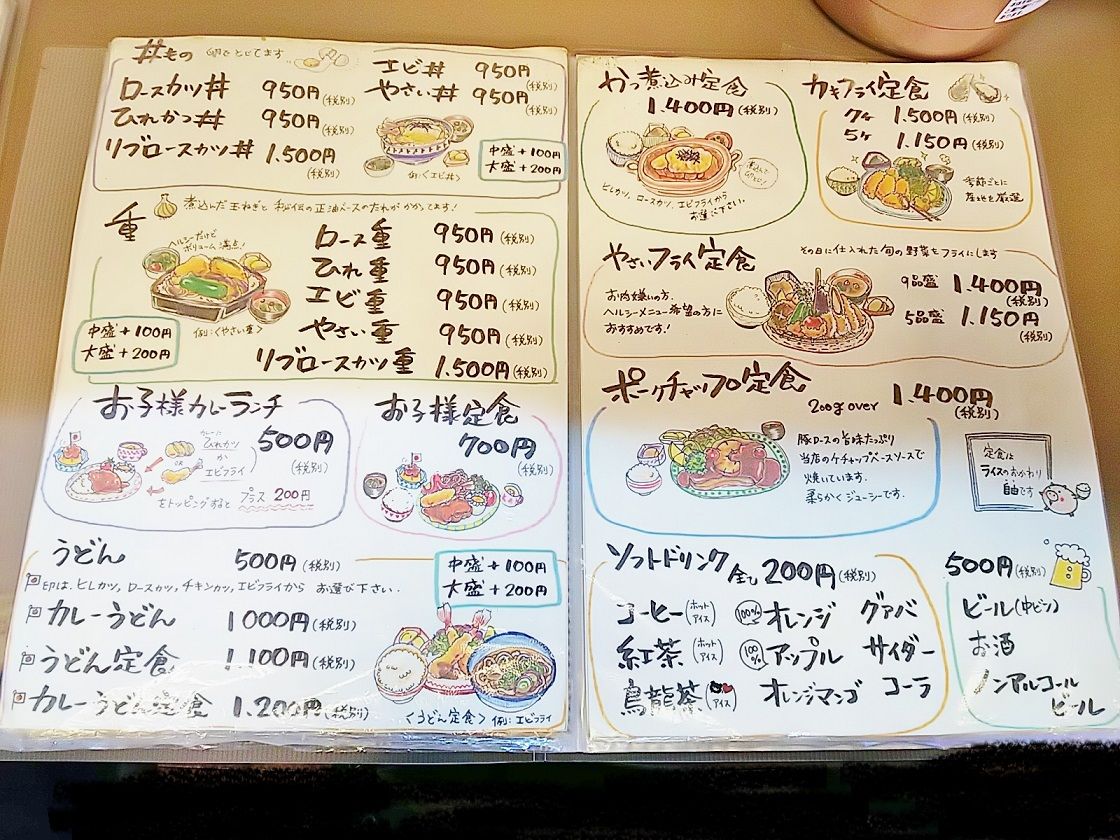 丼もの 卵でとじてます
ロースカツ丼 950円(税別)
ひれかつ丼 950円(税別)
リブロースカツ丼 1.500円(税別)
エビ丼 950円(税別)
やさい丼 950円(税別)
(例:くエビ丼>)
中盛+100円
大盛+200円
重 煮込んだ玉ねぎと秘伝の正油ベースのたれがかかってます!
ヘルシーだけど
ボリューム満点!
(例:くやさい重>)
中盛+100円
大盛+200円
ロース重 950円(税別)
ひれ重 950円(税別)
エビ重 950円(税別)
やさい重 950円(税別)
リブロースカツ重 1.500円(税別)
お子様カレーランチ
500円(税別)
カレーに
ひれカツ
か
エビフライ
OR
をトッピングすると プラス200円
お子様定食
700円(税別)
うどん 500円(税別)
中盛+100円
大盛+200円
印は、ヒレカツ,ロースカツ,チキンカツ,エビフライから お選び下さい.
カレーうどん 1000円(税別)
うどん定食 1.100円(税別)
カレーうどん定食 1.200円(税別)
<うどん定食> 例:エビフライ
かつ煮込み定食
1.400円(税別)
ヒレカツ、ロースカツ,エビフライから
お選び下さい。
カキフライ定食
7ケ 1.500円(税別)
5ケ 1.150円(税別)
季節ごとに
産地を厳選
やさいフライ定食 その日に仕入れた旬の野菜をフライにします
お肉嫌いの方、
ヘルシーメニュー希望の方に
おすすめです!
9品盛 1.400円(税別)
5品盛 1.150円(税別)
ポークチャップ定食
200g over 1.400円(税別)
豚ロースの旨味たっぷり
当店のケチャップベースソースで
焼いています.
柔らかくジューシーです.
定食は
ライスのおかわり
自由です
ソフトドリンク 全て200円(税別)
コーヒー(ホット アイス) 100%オレンジ グァバ
紅茶(ホット アイス) 100%アップル サイダー
烏龍茶(アイス) オレンジマンゴ コーラ
500円(税別)
ビール(中ビン)
お酒
ノンアルコール
ビール